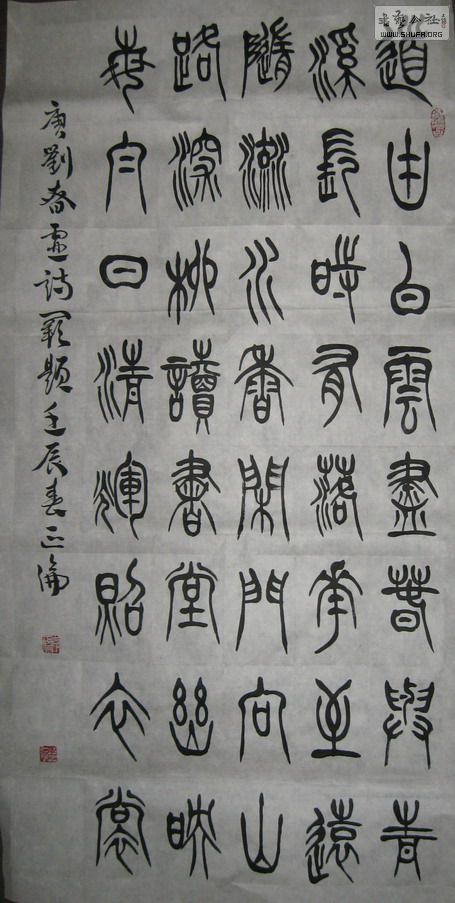 書法公社
WWW.SHUFA.ORG
道由白雲盡春與青
溪長時有落花至遠
隨流水香閑門向山
路深柳讀書堂幽映
每白日清輝照衣裳
唐劉昚虛詩闕題壬辰春正